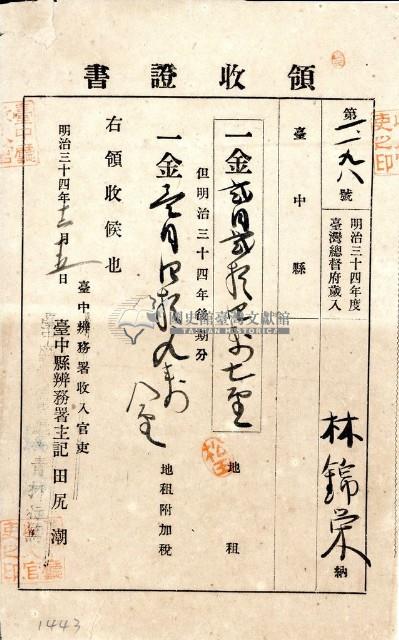 領收證書
第一一九八號
明治三十四年度
臺灣總督府歲入
臺中縣
林錦榮納
一金貳円貳拾四錢七厘 地租
但明治三十四年後期分
一金壱円四拾九錢八厘 地租附加稅
右領收候也
明治三十四年十二月五日
臺中辨務署收入官吏
臺中縣辨務署主記 田尻潮
國史館臺灣文獻館
TAIWAN HISTORICA
1443